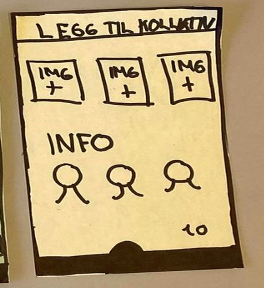 LEGG TIL KOLLEKTIV
IMG IMG IMG
+ + +
INFO
10